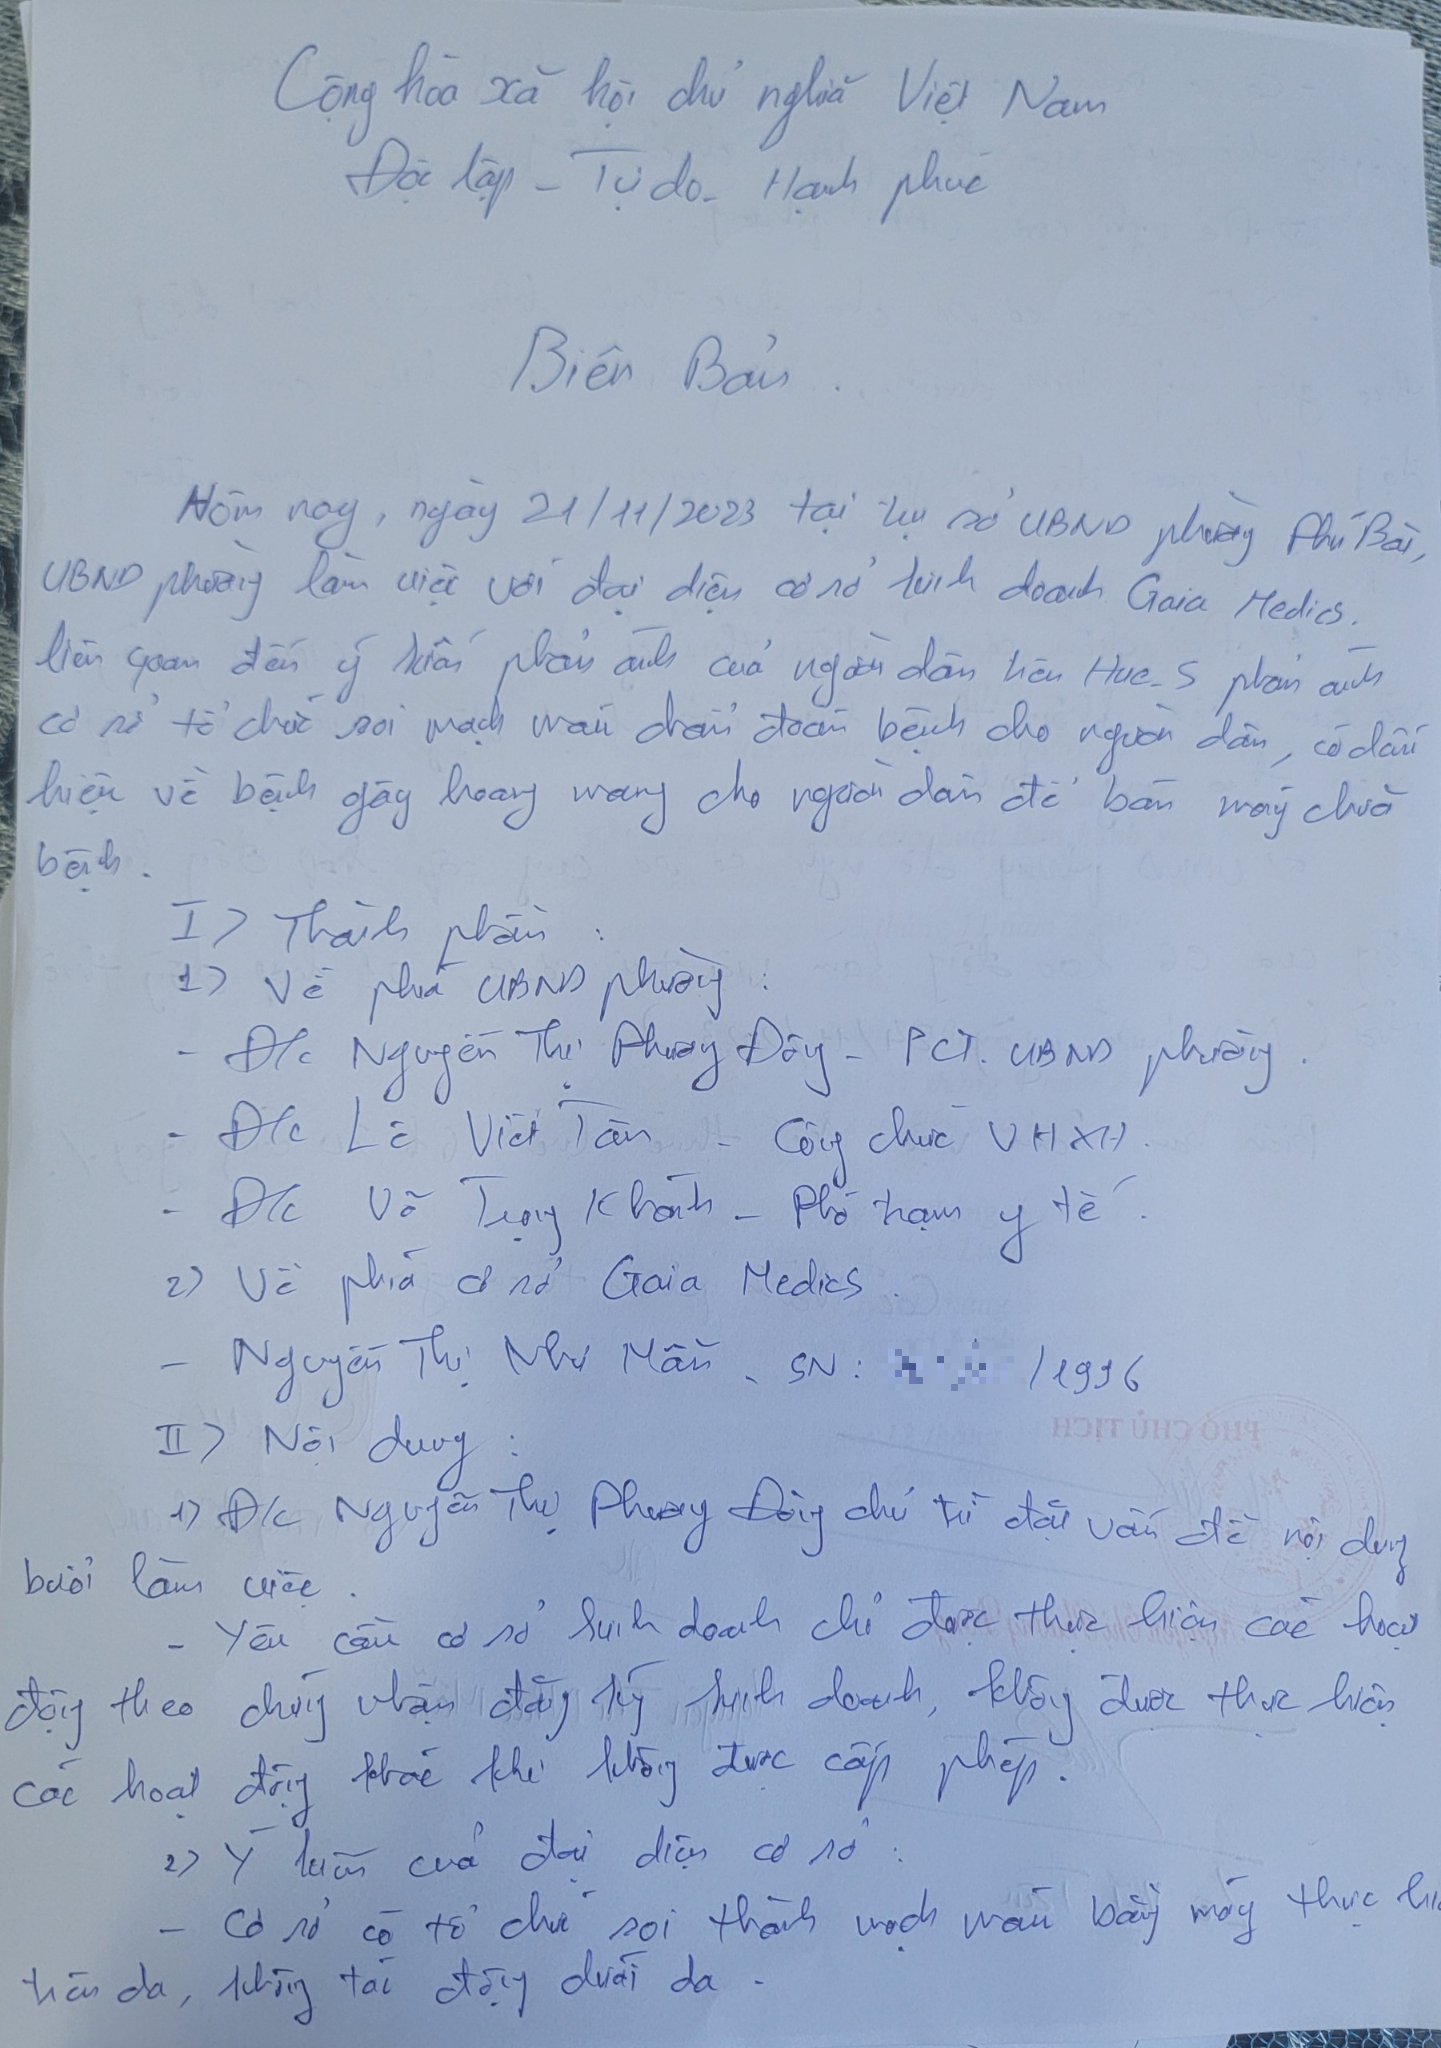 Cộng hòa xã hội chủ nghĩa Việt Nam
Độc lập - Tự do - Hạnh phúc
Biên Bản.
Hôm nay, ngày 21/11/2023 tại trụ sở UBND phường Phú Bài,
UBND phường làm việc với đại diện cơ sở kinh doanh Gaia Medics.
liên quan đến ý kiến phản ánh của người dân trên Hue-S phản ánh
cơ sở tổ chức soi mạch máu chẩn đoán bệnh cho người dân, có dấu
hiệu về bệnh gây hoang mang cho người dân để bán máy chữa
bệnh.
I> Thành phần:
1> Về phía UBND phường:
- Đ/c Nguyễn Thị Phương Đông - PCT. UBND phường.
- Đ/c Lê Viết Tân - Công chức VHXH.
- Đ/c Võ Trọng Khánh - Phó trạm y tế.
2> Về phía cơ sở Gaia Medics.
- Nguyễn Thị Như Mẫn, SN: /1996
PHÓ CHỦ TỊCH
II> Nội dung:
1> Đ/c Nguyễn Thị Phương Đông chủ trì đặt vấn đề nội dung
buổi làm việc.
- Yêu cầu cơ sở kinh doanh chỉ được thực hiện các hoạt
động theo chứng nhận đăng ký kinh doanh, không được thực hiện
các hoạt động khác khi không được cấp phép.
2> Ý kiến của đại diện cơ sở:
- Cơ sở có tổ chức soi thành mạch máu bằng máy thực hiện
trên da, không tác động dưới da.